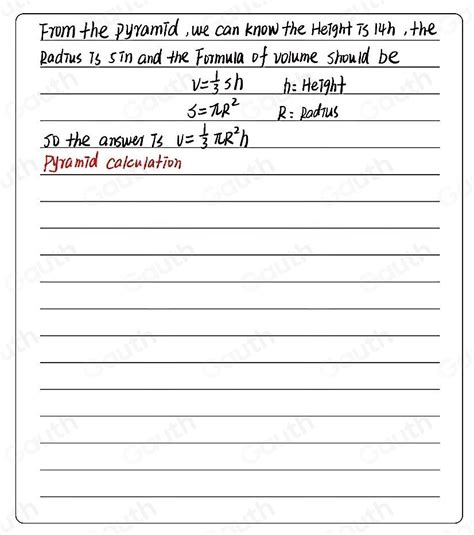 From the pyramid, we can know the Height is 14h, the
Radius is 5in and the Formula of volume should be
V=⅓sh h: Height
S=πR² R: Radius
so the answer is V=⅓πR²h
Pyramid calculation
Gauth